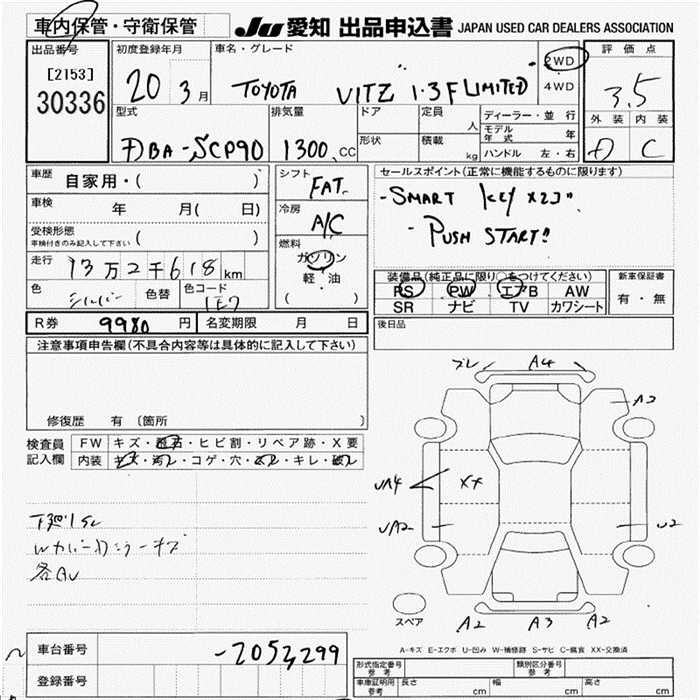 車内保管・守衛保管 JU 愛知 出品申込書 JAPAN USED CAR DEALERS ASSOCIATION
出品番号 初度登録年月 車名・グレード 2WD 評価点
[2153] 20 3月 TOYOTA VITZ "1.3F LIMITED" 4WD 3.5
30336
型式 排気量 ドア 定員 人 ディーラー・並行 外装 内装
DBA-SCP90 1300 CC 形状 積載 kg モデル年式 年 C
ハンドル 左・右
車歴 自家用・( ) シフト FAT セールスポイント(正常に機能するものに限ります)
車検 年 月( 日) 冷房 A/C -SMART KEY X2コ
受検形態 車検付きのみ記入して下さい ( ) 燃料 - PUSH START!!
走行 13万2千618km ガソリン
軽・油
( )
色 シルバー 色替 色コード 1E7
装備品(純正品に限り○をつけてください) 新車保証書
PS PW エアB AW 有・無
SR ナビ TV カワシート
R券 9980円 名変期限 月 日 後日品
注意事項申告欄(不具合内容等は具体的に記入して下さい)
修復歴 有 〔箇所 〕
検査員 FW キズ・飛石・ヒビ割・リペア跡・X要
記入欄 内装 キズ・汚レ・コゲ・穴・スレ・キレ・破レ
各AU
A4
A2
UA4 X4
UA2 U2
スペア A2 A3 A2
A-キズ E-エクボ U-凹み W-補修跡 S-サビ C-腐食 XX-交換済
車台番号 -2053299
登録番号
形式指定番号 参考 類別区分番号 参考
車庫証明用 参考 長さ cm 幅 cm 高さ cm